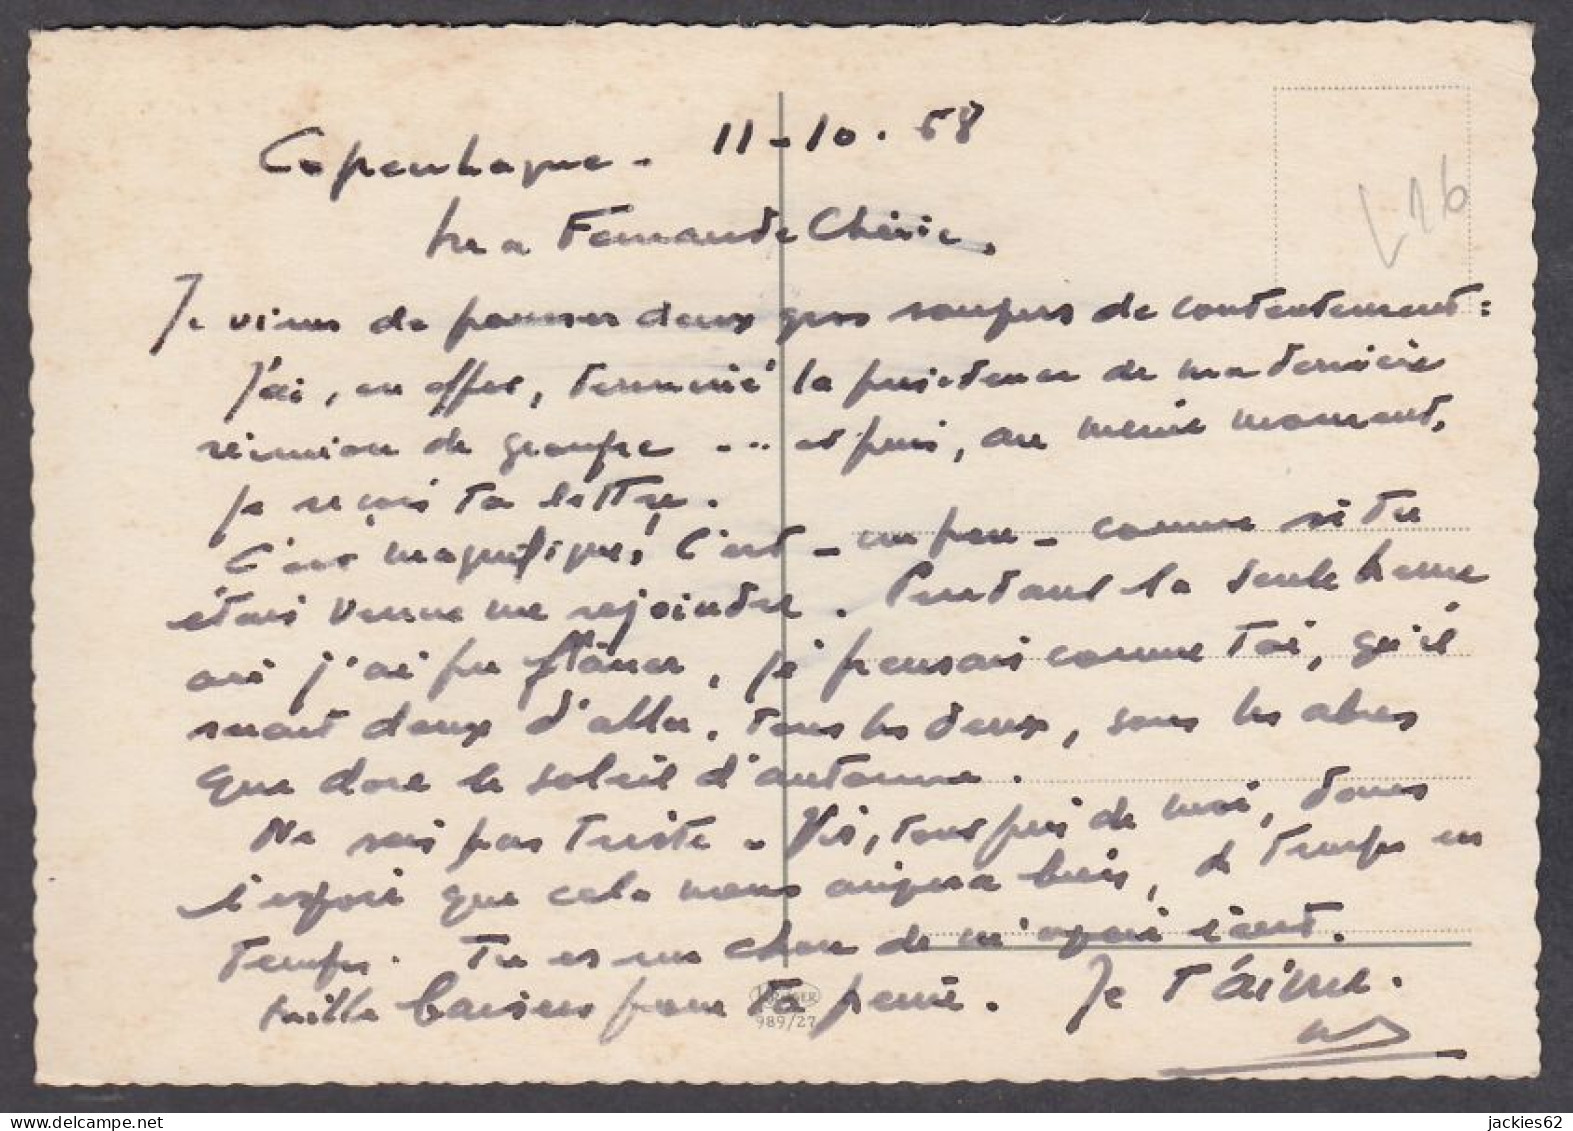 Copenhague - 11-10.68
Ma Fernande Chérie.
Je viens de pousser deux gros soupirs de contentement :
J'ai, en effet, terminé la présidence de ma dernière
réunion de groupe ... et puis, au même moment,
je reçois ta lettre.
C'est magnifique! C'est - un peu - comme si tu
étais venue me rejoindre. Pendant la seule heure
où j'ai pu flâner, je pensais comme toi, qu'il
serait doux d'aller, tous les deux, sous les arbres
que dore le soleil d'automne.
Ne sois pas triste - Vis, tout près de moi, dans
l'espoir que cela nous arrivera bien, de temps en
temps. Tu es un chou de m'avoir écrit.
Mille baisers pour ta peine. Je t'aime.
989/27
L26
jackies62